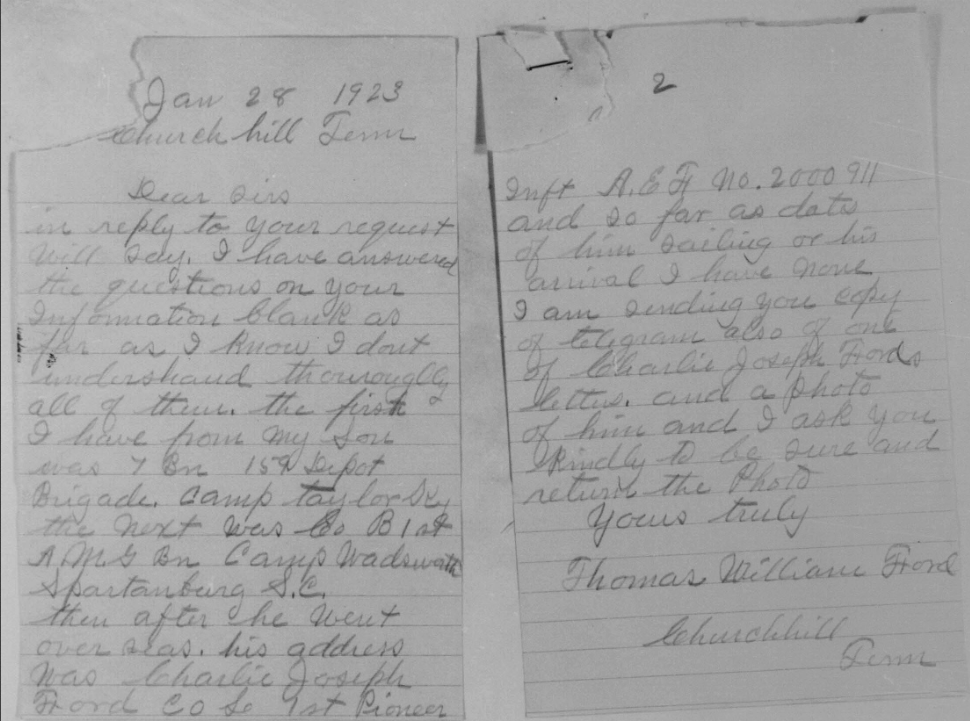 Jan 28 1923
Churchhill Tenn
Dear Sirs
in reply to your request
Will say. I have answered
the questions on your
Information blank as
far as I know I dont
understand thouroughly
all of them. the first
I have from my son
was 7 Bn 159 Depot
Brigade. Camp taylor Ky
the next was Co B 1st
A.M.G Bn Camp Wadswoth
Spartanburg S.C.
then after he went
over seas. his address
was Charlie Joseph
Ford Co 1st Pioneer
2
Inft A.E.F No. 2000911
and so far as date
of him sailing or his
arrival I have none
I am sending you copy
of telegram also of one
of Charlie Joseph Fords
letters. and a photo
of him and I ask you
kindly to be sure and
return the Photo
Yours truly
Thomas William Ford
Churchhill
Tenn